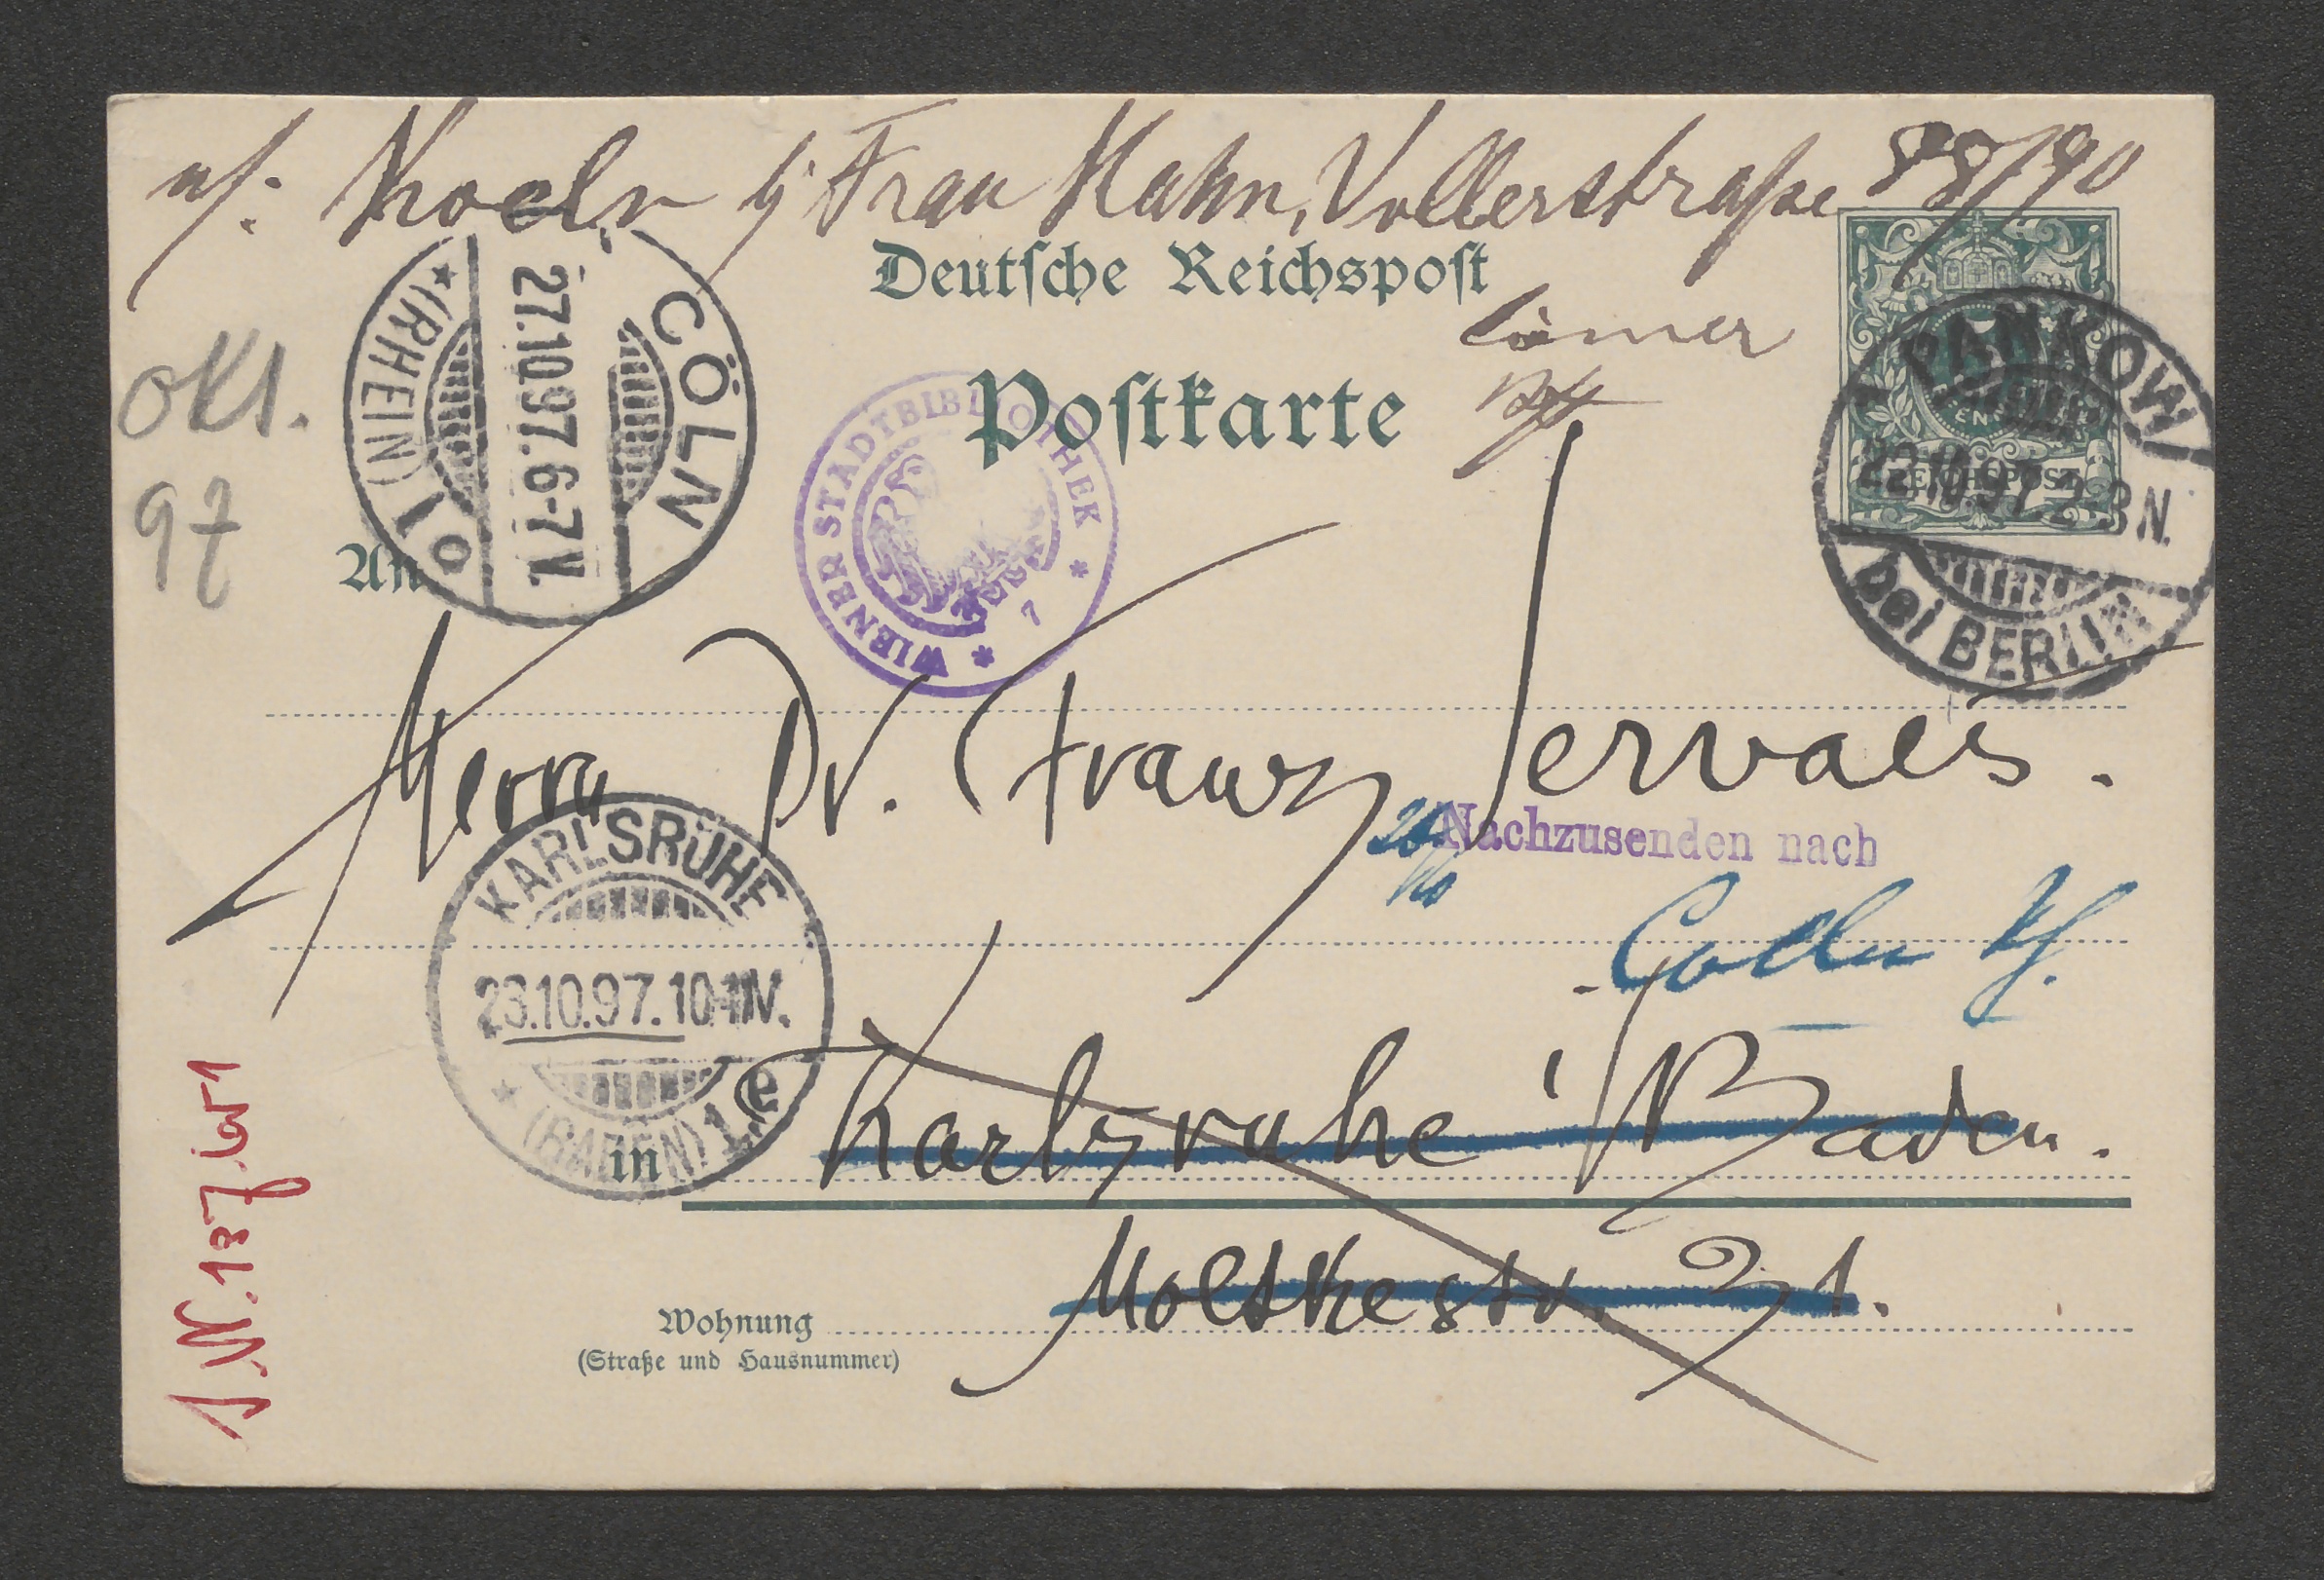 n/: Koeln bj Frau Hahn, Vollerstraße 88/90
Deutsche Reichspost
Postkarte
CÖLN
27.10.97.6-7V.
*(RHEIN) 1 o
WIENER STADTBIBLIOTHEK
7
PANKOW
22.10.97.2-3N.
bei BERLIN
REICHSPOST
Okt.
97
An
Herrn Dr. Franz Servaes.
Nachzusenden nach
26/10
Coeln
KARLSRUHE
23.10.97.10-11V.
* (BADEN) 1.e
in
Karlsruhe i/Baden.
Moltkestr. 31.
Wohnung
(Straße und Hausnummer)